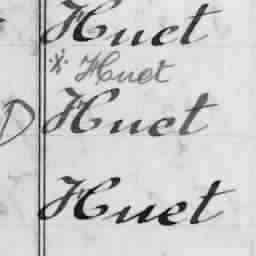 Huet
* Huet
D Huet
Huet